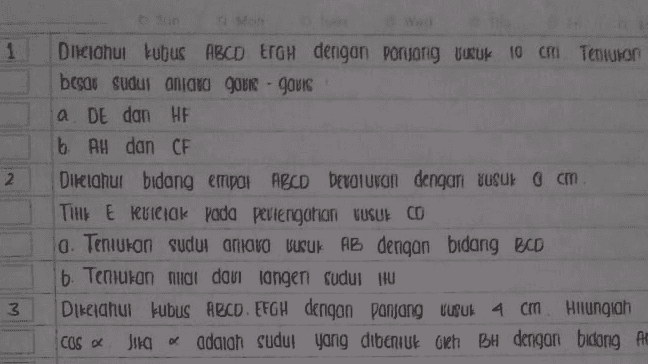 1 Diketahui kubus ABCD EFGH dengan panjang rusuk 10 cm Tentukan
besar sudut antara garis - garis
a. DE dan HF
b. AH dan CF
2 Diketahui bidang empat ABCD beraturan dengan rusuk a cm.
Titik E terletak pada pertengahan rusuk CD
a. Tentukan sudut antara rusuk AB dengan bidang BCD
b. Tentukan nilai dari tangen sudut itu
3 Diketahui kubus ABCD.EFGH dengan panjang rusuk 4 cm. Hitunglah
cos ∝ Jika ∝ adalah sudut yang dibentuk oleh BH dengan bidang